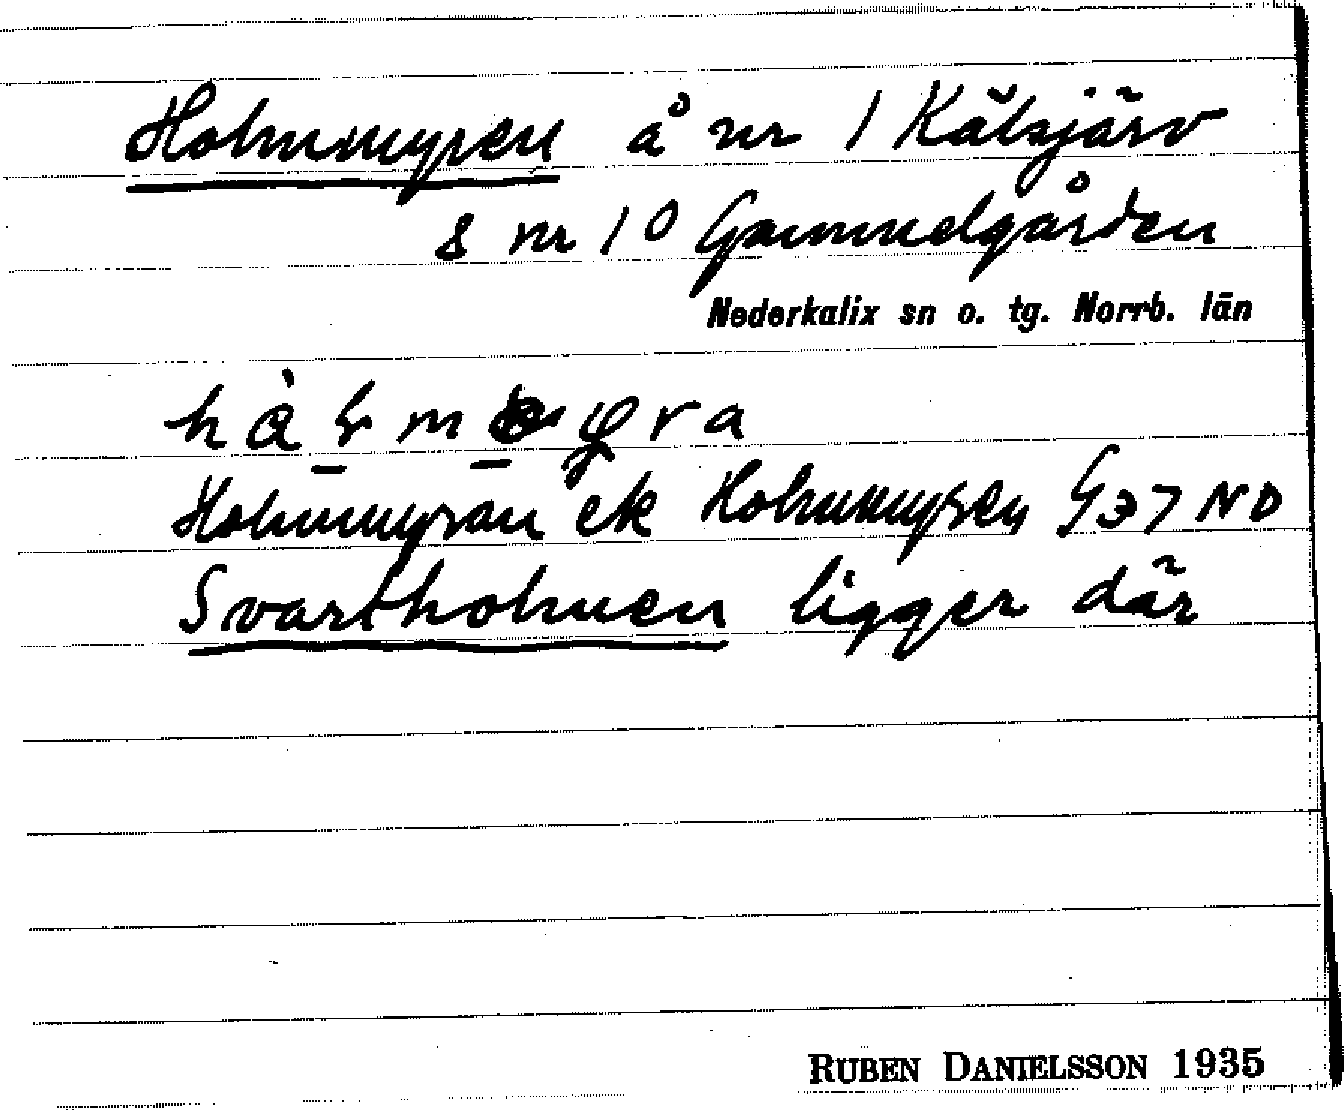 Holmmyren å nr 1 Kälsjärv
& nr 10 Gammelgården
Nederkalix sn o. tg. Norrb. län
Holmmyran ek Holmmyren G37 ND
Svartholmen ligger där
RUBEN DANIELSSON 1935